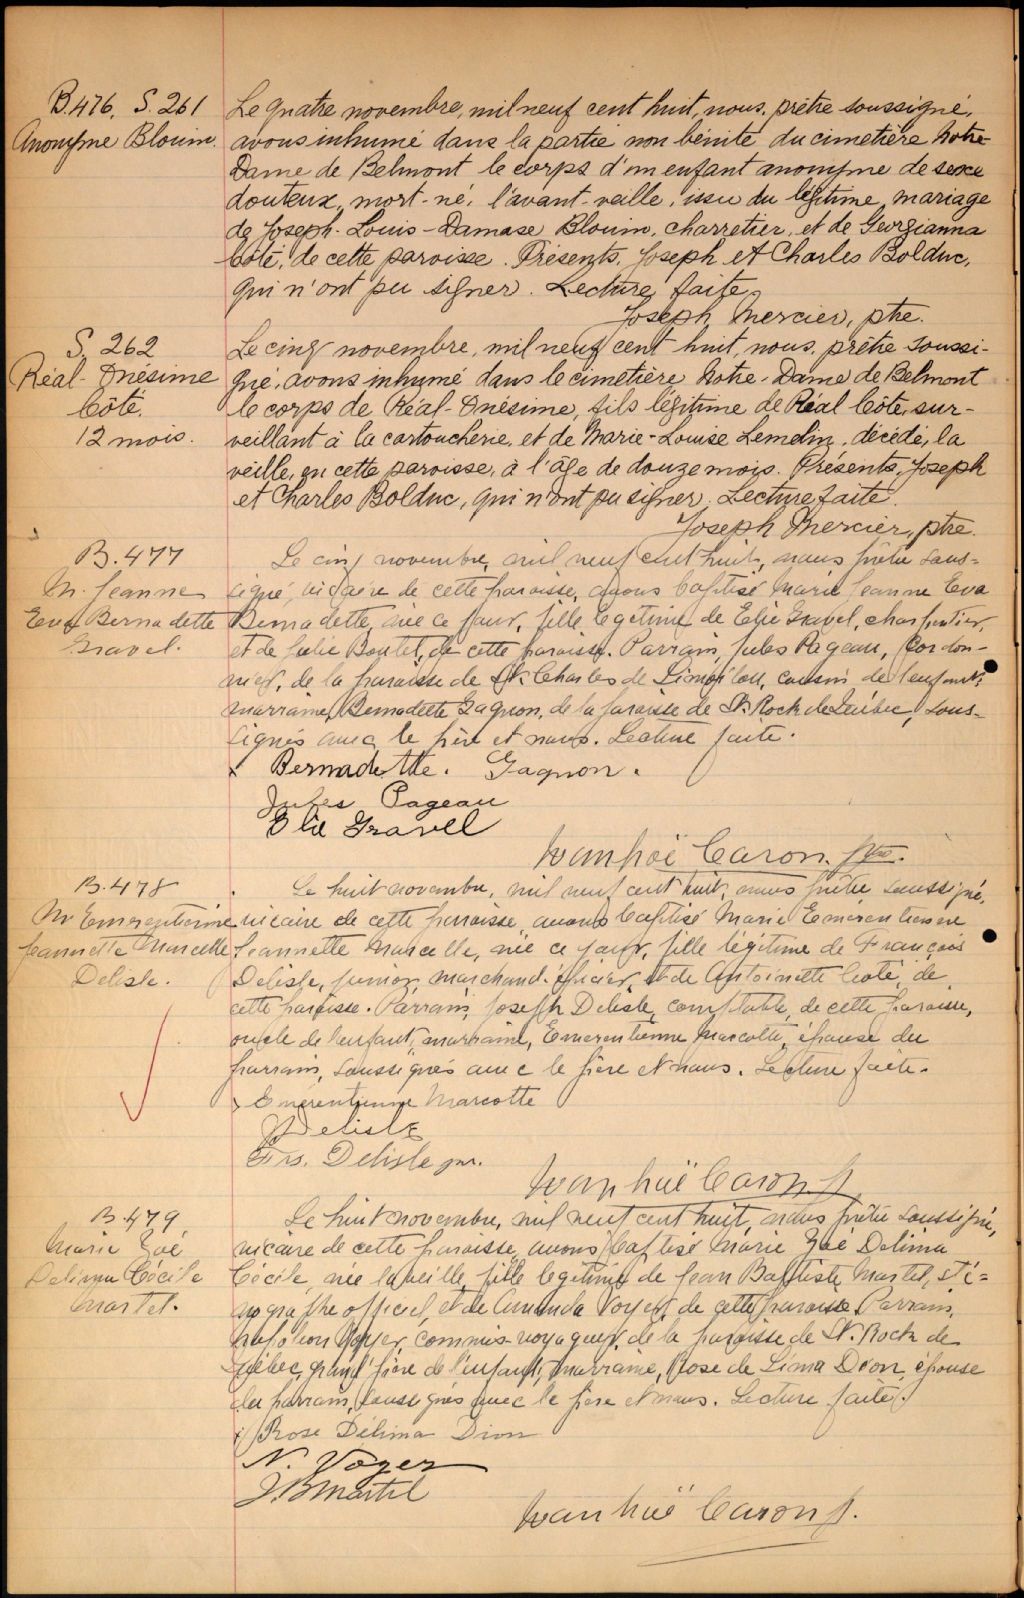 B.476, S. 261
Anonyme Blouin.
Le quatre novembre, mil neuf cent huit, nous, prêtre soussigné,
avons inhumé dans la partie non bénite du cimetière Notre-
Dame de Belmont le corps d'un enfant anonyme de sexe
douteux, mort-né, l'avant-veille, issu du légitime mariage
de Joseph-Louis-Damase Blouin, charretier, et de Georgianna
Côté, de cette paroisse. Présents, Joseph et Charles Bolduc,
qui n'ont pu signer. Lecture faite.
Joseph Mercier, ptre.
S. 262
Réal-Onésime
Côté.
12 mois.
Le cinq novembre, mil neuf cent huit, nous, prêtre soussi-
gné, avons inhumé dans le cimetière Notre-Dame de Belmont
le corps de Réal-Onésime, fils légitime de Réal Côté, sur-
veillant à la cartoucherie, et de Marie-Louise Lemelin, décédé, la
veille, en cette paroisse, à l'âge de douze mois. Présents, Joseph
et Charles Bolduc, qui n'ont pu signer. Lecture faite.
Joseph Mercier, ptre.
B.477
M. Jeanne
Eva Bernadette
Gravel.
Le cinq novembre, mil neuf cent huit, nous prêtre sous-
signé, vicaire de cette paroisse, avons baptisé Marie Jeanne Eva
Bernadette, née ce jour, fille légitime de Elie Gravel, charpentier,
et de Julie Boutet, de cette paroisse. Parrain, Jules Pageau, cordon-
nier, de la paroisse de St. Charles de Limoilou, cousin de l'enfant;
marraine, Bernadette Gagnon, de la paroisse de St. Roch de Québec, sous-
signés avec le père et nous. Lecture faite.
x Bernadette. Gagnon.
Jules Pageau
Elie Gravel
Ivanhoë Caron, ptre.
B.478
M Emerentienne
Jeannette Marcelle
Delisle.
Le huit novembre, mil neuf cent huit, nous prêtre soussigné,
vicaire de cette paroisse, avons baptisé Marie Emerentienne
Jeannette Marcelle, née ce jour, fille légitime de François
Delisle, junior, marchand-épicier, et de Antoinette Côté, de
cette paroisse. Parrain, Joseph Delisle, comptable, de cette paroisse,
oncle de l'enfant; marraine, Emerentienne Marcotte, épouse du
parrain, soussignés avec le père et nous. Lecture faite.
x Emérentienne Marcotte
J Delisle
Frs. Delisle jnr.
Ivanhoë Caron p.
B.479
Marie Zoé
Delima Cécile
Martel.
Le huit novembre, mil neuf cent huit, nous prêtre soussigné,
vicaire de cette paroisse, avons baptisé Marie Zoé Delima
Cécile, née la veille, fille légitime de Jean Baptiste Martel, sté-
nographe officiel, et de Amanda Voyer, de cette paroisse. Parrain,
Napoléon Voyer, commis-voyageur, de la paroisse de St. Roch de
Québec, grand'père de l'enfant; marraine, Rose de Lima Dion, épouse
du parrain, soussignés avec le père et nous. Lecture faite.
x Rose Délima Dion
N. Voyer
J.B Martel
Ivanhoë Caron p.